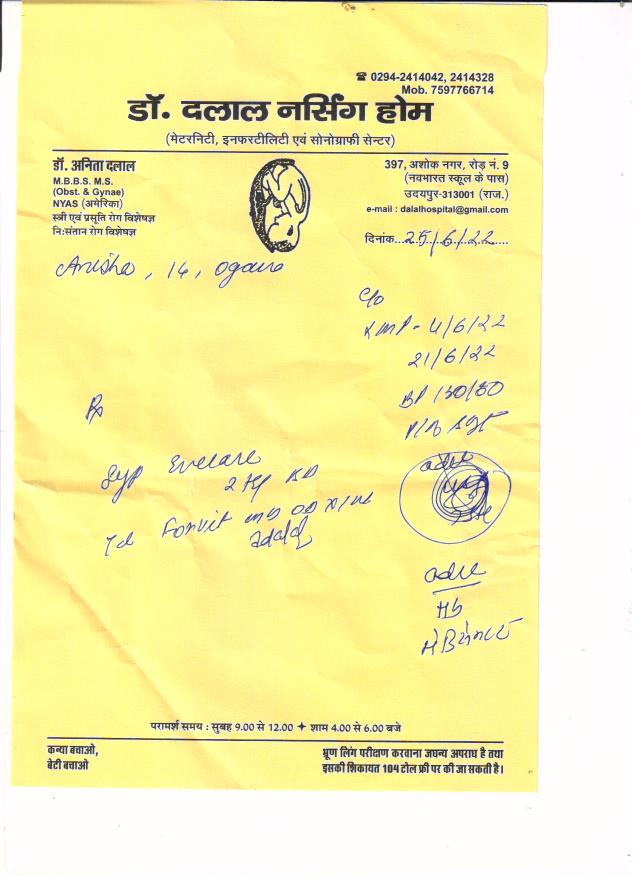 ☎ 0294-2414042, 2414328
Mob. 7597766714
डॉ. दलाल नर्सिंग होम
(मेटरनिटी, इनफरटीलिटी एवं सोनोग्राफी सेन्टर)
डॉ. अनिता दलाल
M.B.B.S. M.S.
(Obst. & Gynae)
NYAS (अमेरिका)
स्त्री एवं प्रसूति रोग विशेषज्ञ
नि:संतान रोग विशेषज्ञ
397, अशोक नगर, रोड़ नं. 9
(नवभारत स्कूल के पास)
उदयपुर-313001 (राज.)
e-mail : dalalhospital@gmail.com
दिनांक 25/6/22
Anisha, 14,
c/o
LMP - 4/6/22
21/6/22
BP 130/80
Rx
Syp Evecare
2 tsf BD
Fonvit
adv
adv
Hb
परामर्श समय : सुबह 9.00 से 12.00 ✦ शाम 4.00 से 6.00 बजे
कन्या बचाओ,
बेटी बचाओ
भ्रूण लिंग परीक्षण करवाना जघन्य अपराध है तथा
इसकी शिकायत 104 टोल फ्री पर की जा सकती है।